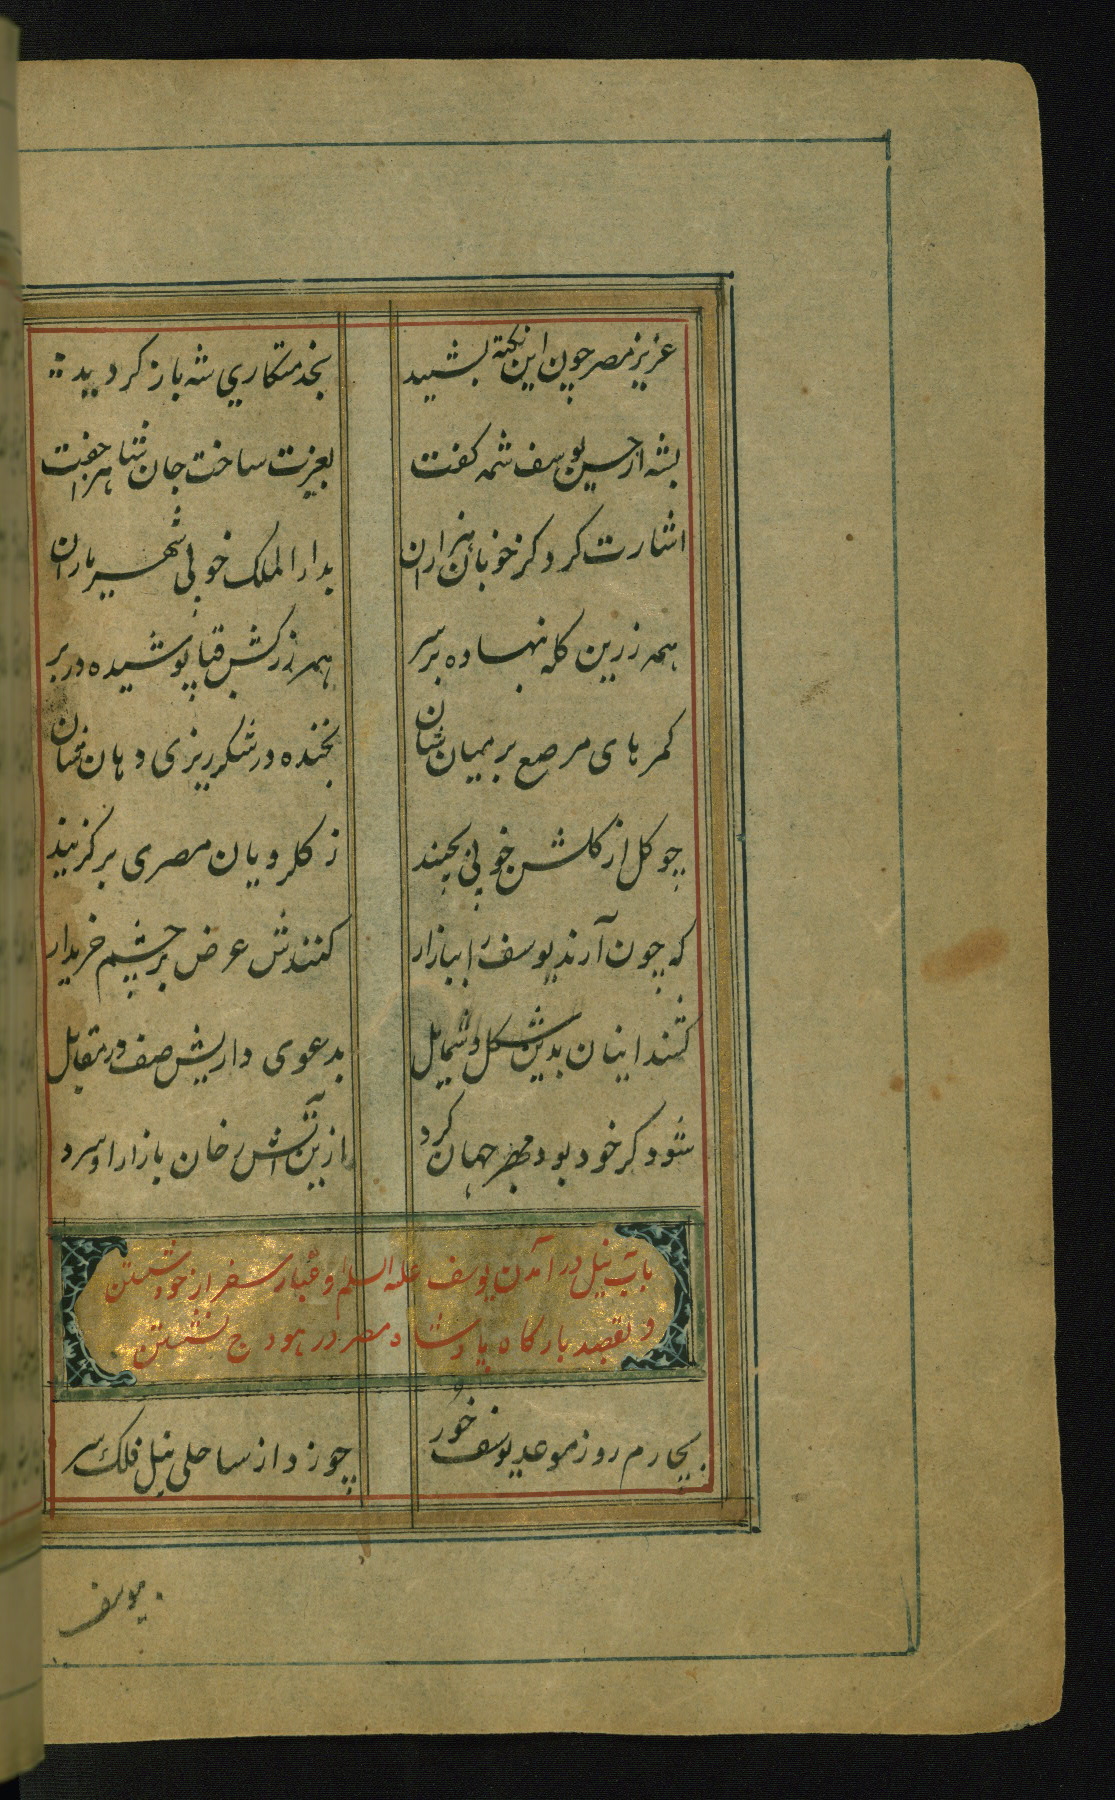 عزیز مصر چون این نکته بشنید بخدمتکاري شه باز کردید
بشه از حسن یوسف شمه کفت بعیزت ساخت جان شاه را جفت
اشارت کرد کز خوبان هزاران بدار الملک خوبی شهریاران
همه زرین کله نهاده بر سر همه زرکش قبا پوشیده در بر
کمرهای مرصع بر میان شان بخنده در شکرریزی دهان شان
چو کل از کلشن خوبی بچیند ز کلرویان مصری برکزیند
که چون آرند یوسف را ببازار کنندش عرض بر چشم خریدار
کشند اینان بدین شکل و شمایل بدعوی داریش صف در مقابل
شود کر خود بود مهر جهان کرد ازین آتش رخان بازار او سرد
بآب نیل در آمدن یوسف علیه السلم و غبار سفر از خود شستن
و بقصد بارکاه پادشاه مصر در هودج نشستن
بچارم روز موعد یوسف خور چو زد از ساحلی نیل فلک سر
یوسف